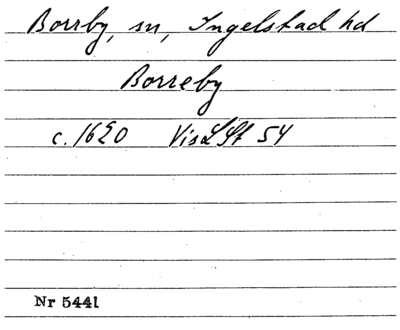 Borrby, sn, Ingelstad hd
Borreby
c. 1620 VisLSt 54
Nr 5441